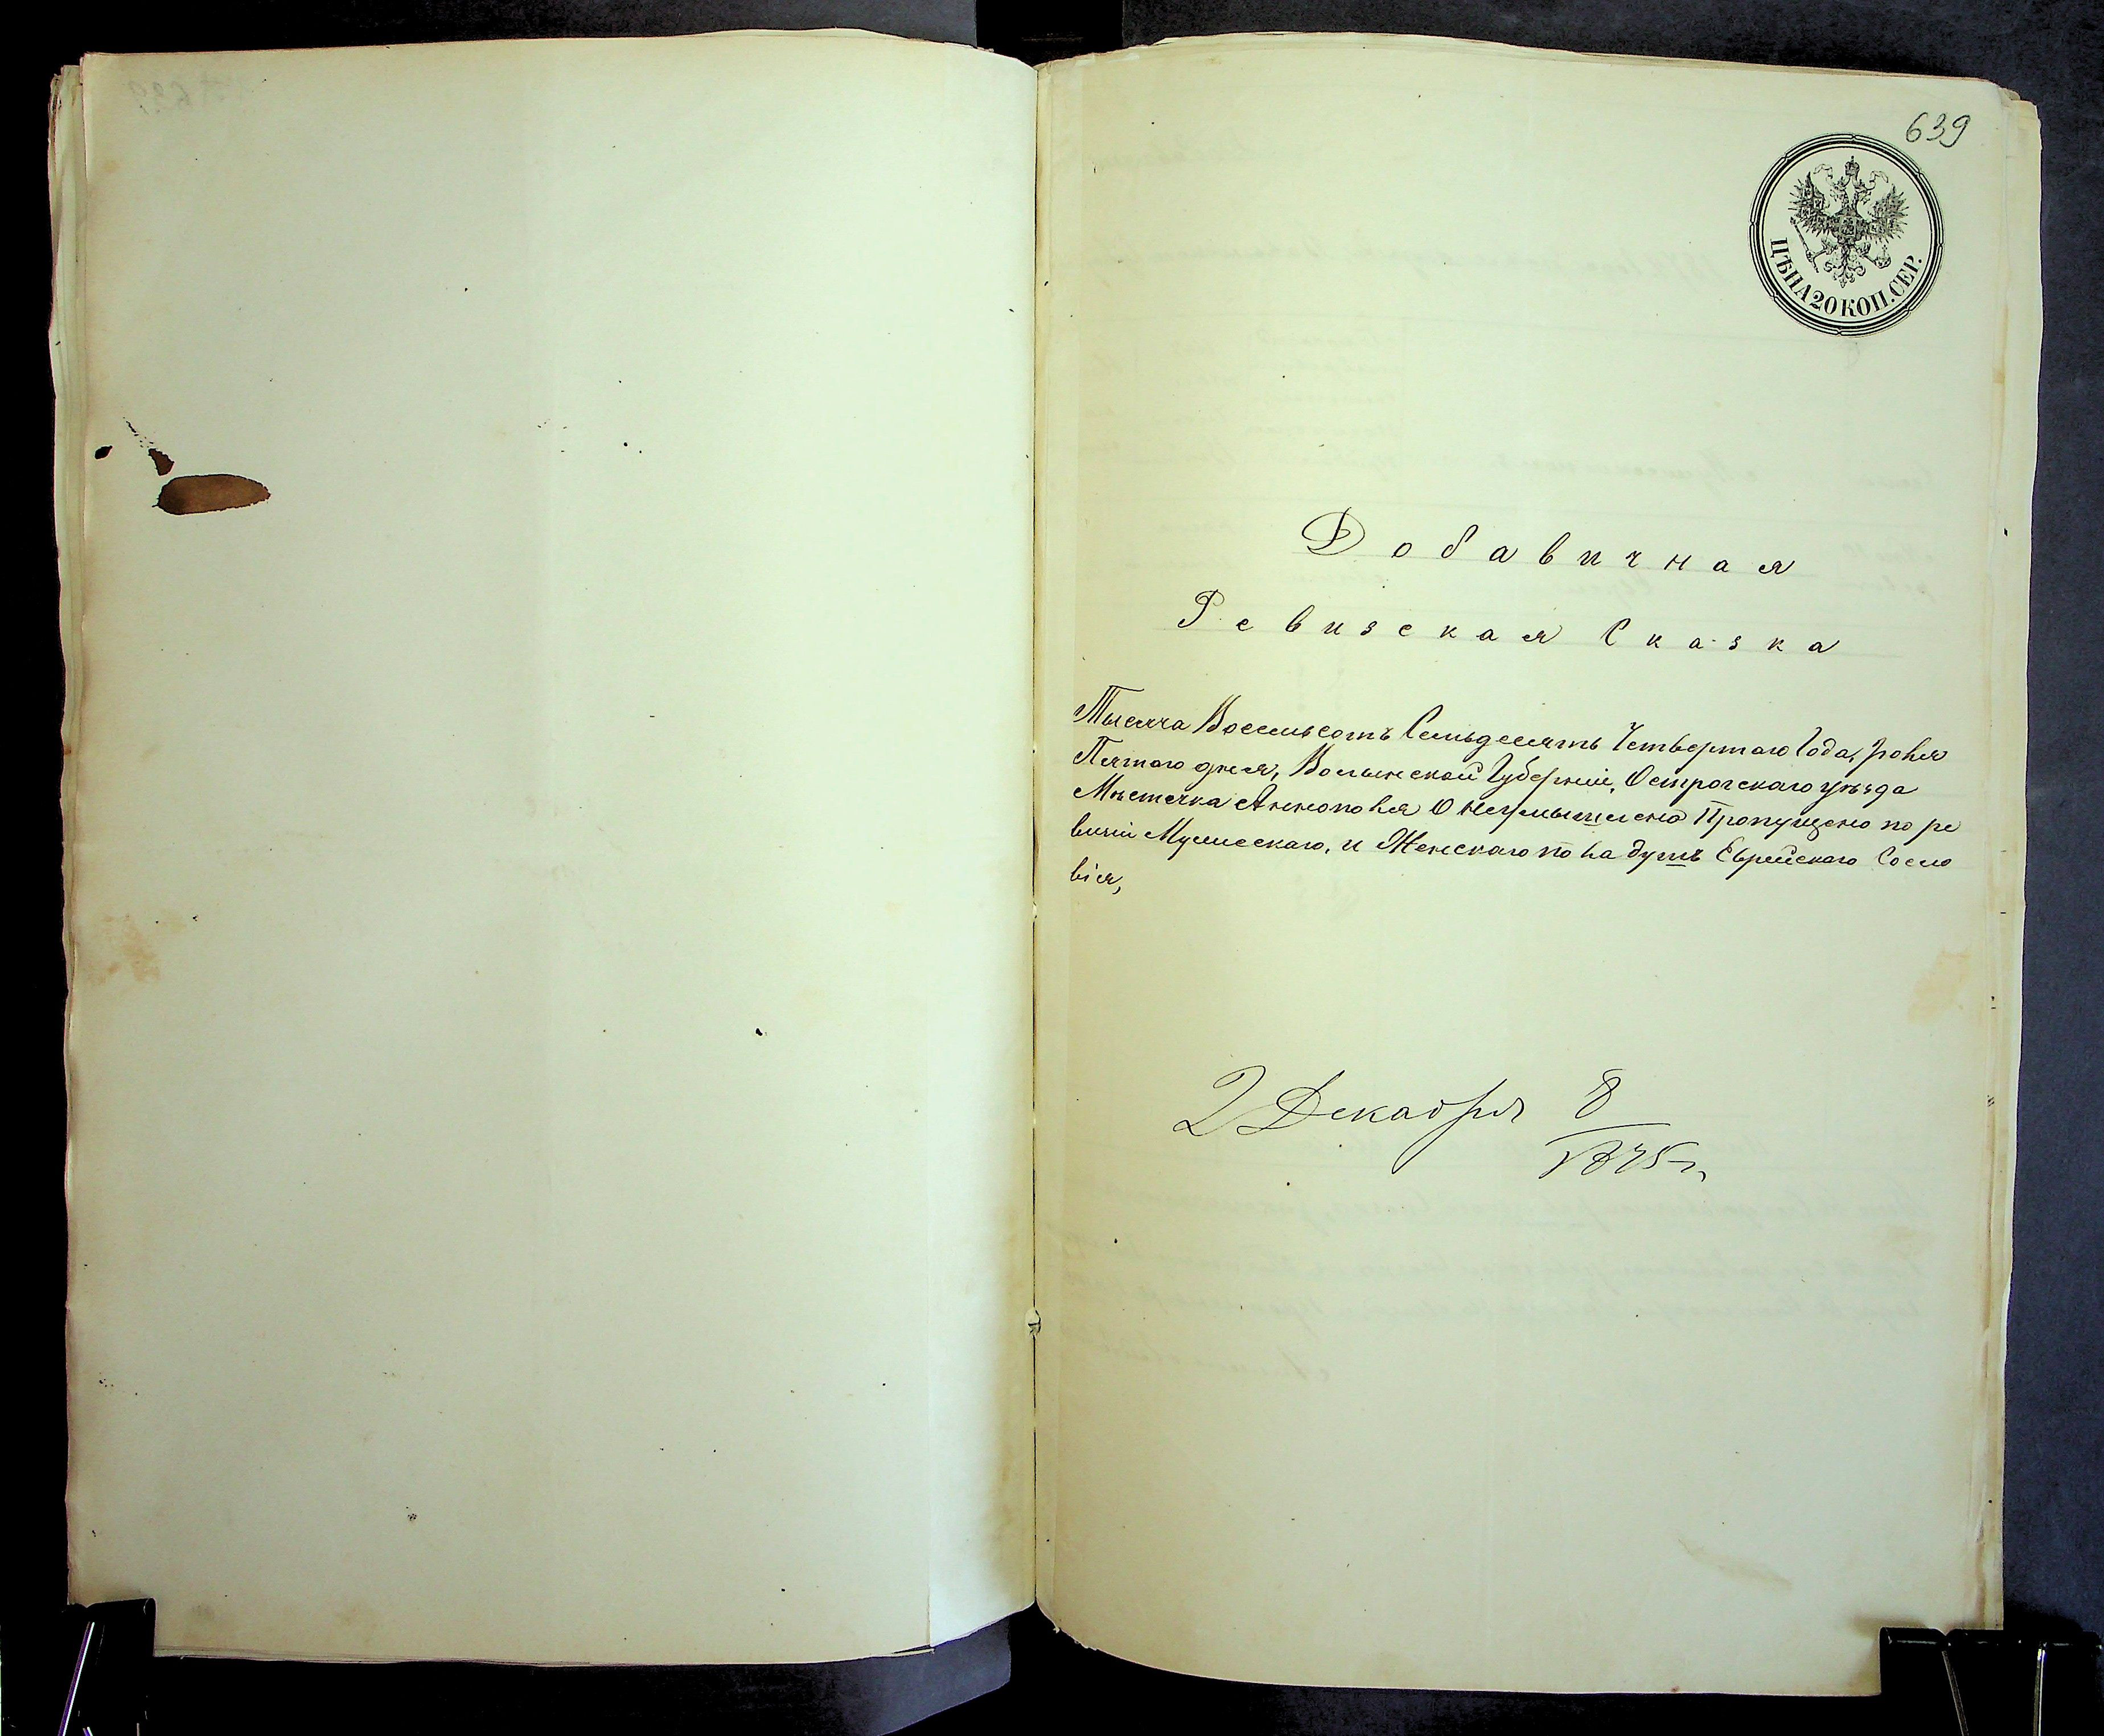 639
ЦѢНА 20 КОП. СЕР.
Добавичная
Ревизская Сказка
Тысяча Восемьсотъ Семьдесятъ Четвертаго Года,
Пятого дня, Волынской Губерніи, Острогскаго уѣзда
Мѣстечка Аннополя О неумышлено Пропущено по ре
визіи Мужескаго, и Женскаго пола душъ Еврейскаго Сосло
вія,
2 Декабря 8
1875 г.